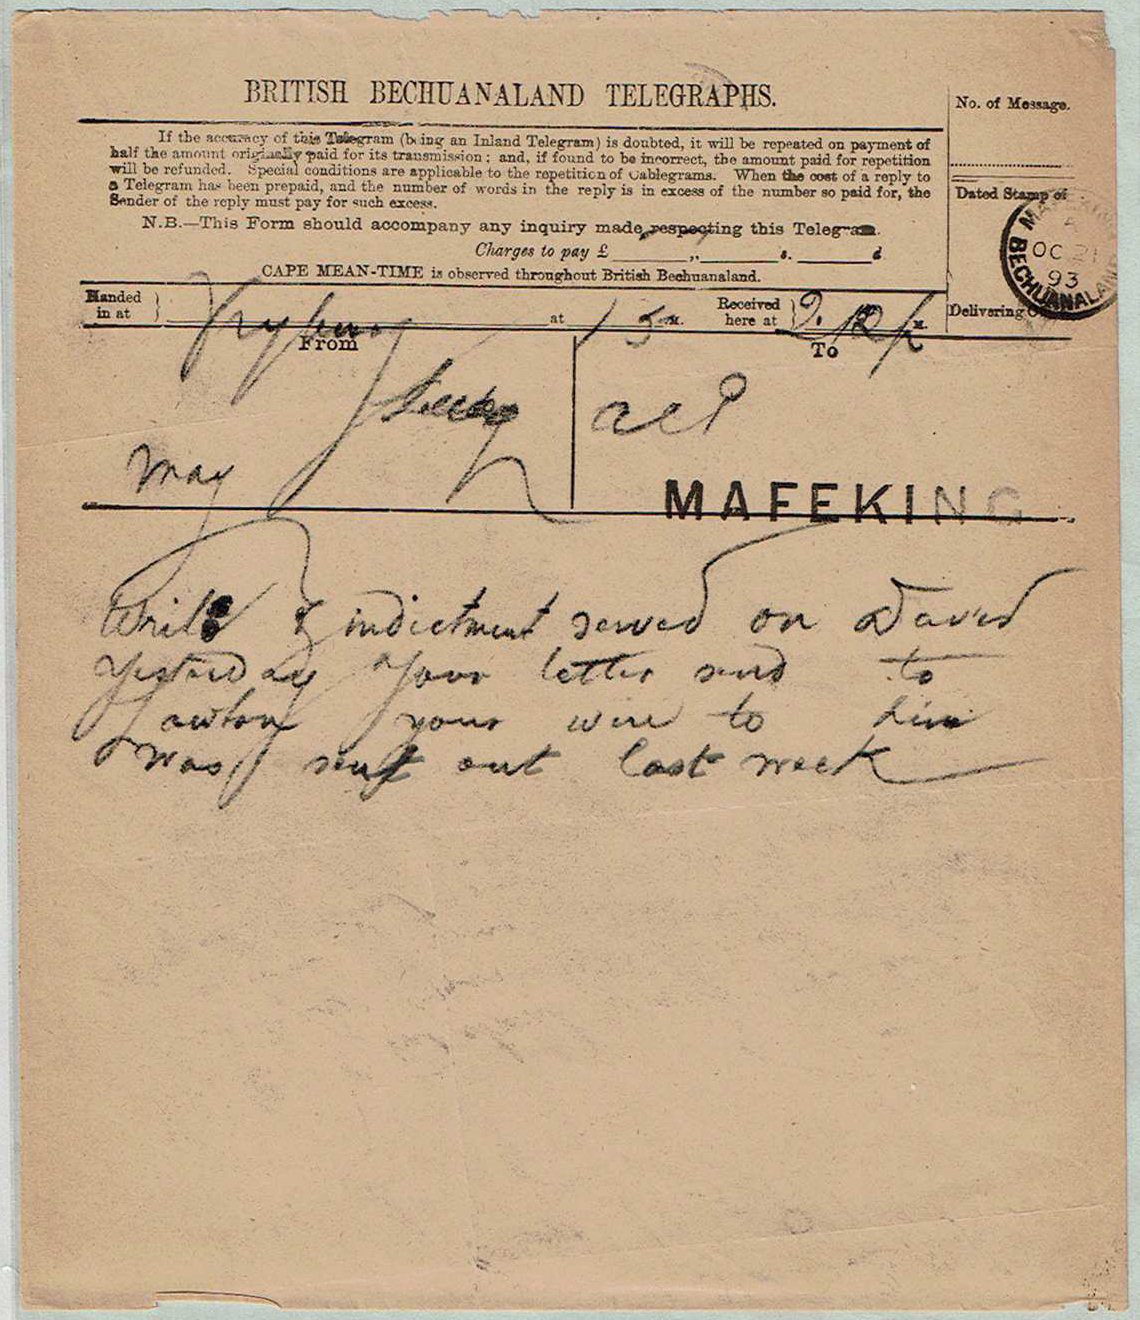 BRITISH BECHUANALAND TELEGRAPHS.
No. of Message.
If the accuracy of this Telegram (being an Inland Telegram) is doubted, it will be repeated on payment of
half the amount originally paid for its transmission; and, if found to be incorrect, the amount paid for repetition
will be refunded. Special conditions are applicable to the repetition of Cablegrams. When the cost of a reply to
a Telegram has been prepaid, and the number of words in the reply is in excess of the number so paid for, the
Sender of the reply must pay for such excess.
Dated Stamp of
N.B.—This Form should accompany any inquiry made respecting this Telegram.
Charges to pay £ ______ ,, ______ s. ______ d
CAPE MEAN-TIME is observed throughout British Bechuanaland.
MAFEKING
OC 21
93
BECHUANALAND
Delivering
Handed in at Vryburg at 1 5 M. Received here at 2. 12 M.
From
To
May
MAFEKING
indictment served on David
Yesterday Your letter send to
Lawton your wire to him
Was sent out last week